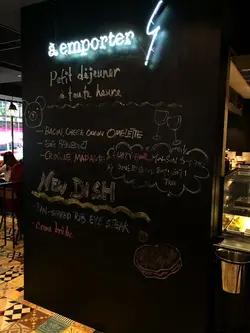 à emporter
Petit déjeuner
à toute heure
- BACON, CHEESE ONION OMELETTE
- EGG BENEDICT
- CROQUE MADAME
HAPPY
NEW DISH
- PAN-SEARED RIB EYE STEAK
- Creme brûlée